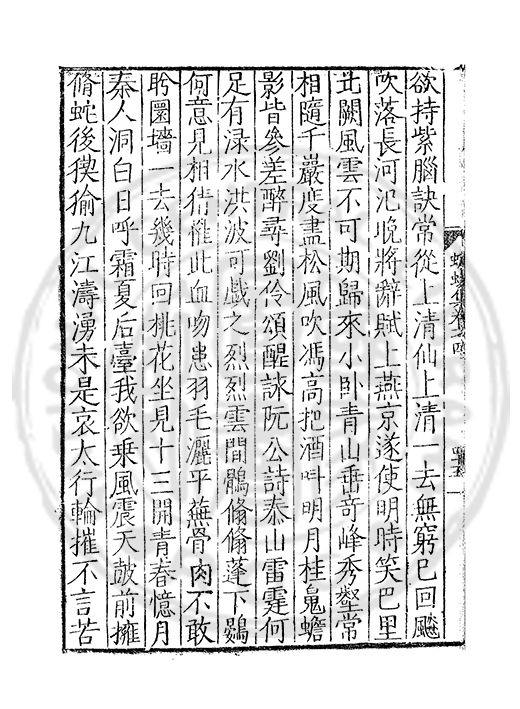 欲持紫腦訣常從上清仙上清一去無窮已回飈
吹落長河氾晚將辭賦上燕京遂使明時笑巴里
北闕風雲不可期歸來小卧青山垂奇峰秀壑常
相隨千巖度盡松風吹馮高把酒呌明月桂䰟蟾
影皆參差醉尋劉伶頌醒詠阮公詩泰山雷霆何
足有淥水洪波可戲之烈烈雲間鶻翛翛蓬下鷃
何意見相猜惟此血吻患羽毛灑平蕪骨肉不敢
盻圜墻一去幾時回桃花坐見十三開青春憶月
泰人洞白日呼霜夏后臺我欲乗風震天皷前擁
脩蛇後猰㺄九江濤湧未是哀太行輪摧不言苦
蠛蠓集卷之四